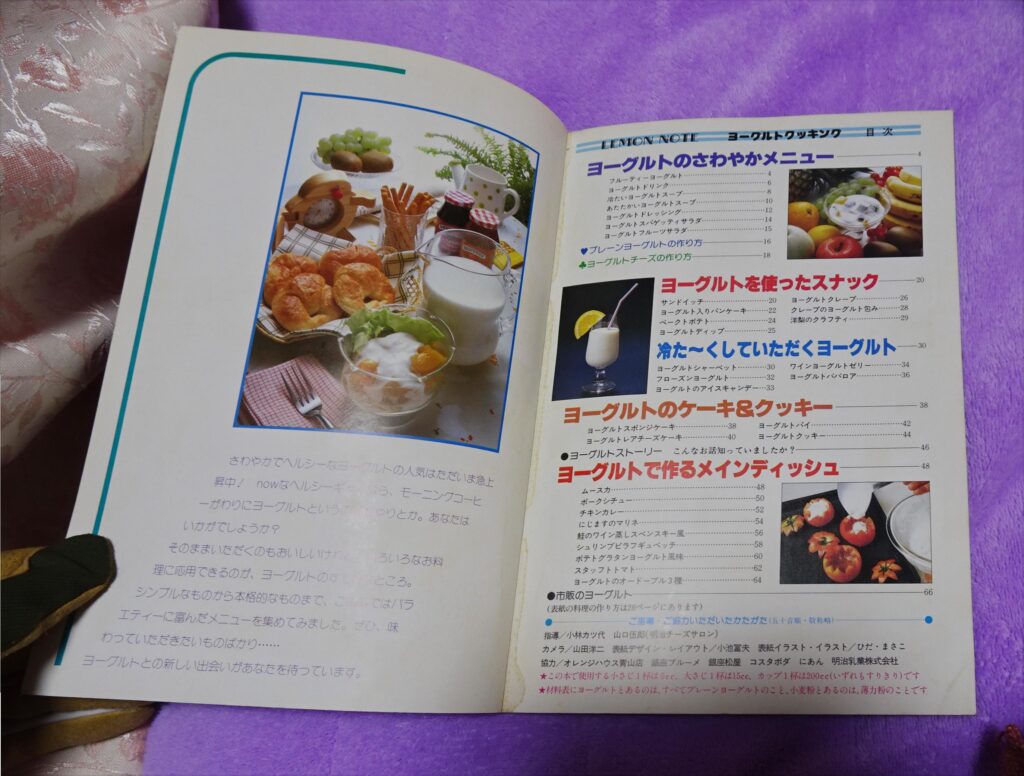 さわやかでヘルシーなヨーグルトの人気はただいま急上
昇中! nowなヘルシーギ
なら、モーニングコーヒ
ーがわりにヨーグルトという
やりとか。あなたは
いかがでしょうか?
そのままいただくのもおいしいけれ
ろいろなお料
理に応用できるのが、ヨーグルトのす
ところ。
シンプルなものから本格的なものまで、こ
ではバラ
エティーに富んだメニューを集めてみました。ぜひ、味
わっていただきたいものばかり……
ヨーグルトとの新しい出会いがあなたを待っています。
LEMON NOTE ヨーグルトクッキング 目次
ヨーグルトのさわやかメニュー 4
フルーティーヨーグルト 4
ヨーグルトドリンク 6
冷たいヨーグルトスープ 8
あたたかいヨーグルトスープ 10
ヨーグルトドレッシング 12
ヨーグルトスパゲッティサラダ 14
ヨーグルトフルーツサラダ 15
♥プレーンヨーグルトの作り方 16
♣ヨーグルトチーズの作り方 18
ヨーグルトを使ったスナック 20
サンドイッチ 20
ヨーグルト入りパンケーキ 22
ベークトポテト 24
ヨーグルトディップ 25
ヨーグルトクレープ 26
クレープのヨーグルト包み 28
洋梨のクラフティ 29
冷た〜くしていただくヨーグルト 30
ヨーグルトシャーベット 30
フローズンヨーグルト 32
ヨーグルトのアイスキャンデー 33
ワインヨーグルトゼリー 34
ヨーグルトババロア 36
ヨーグルトのケーキ&クッキー 38
ヨーグルトスポンジケーキ 38
ヨーグルトレアチーズケーキ 40
ヨーグルトパイ 42
ヨーグルトクッキー 44
●ヨーグルトストーリー こんなお話知っていましたか? 46
ヨーグルトで作るメインディッシュ 48
ムースカ 48
ポークシチュー 50
チキンカレー 52
にじますのマリネ 54
鮭のワイン蒸しスペンスキー風 56
シュリンプピラフギュベッチ 58
ポテトグラタンヨーグルト風味 60
スタッフトトマト 62
ヨーグルトのオードブル3種 64
●市販のヨーグルト 66
(表紙の料理の作り方は26ページにあります)
ご指導・ご協力いただいたかたがた(五十音順・敬称略)
指導/小林カツ代 山口伍郎(明治チーズサロン)
カメラ/山田洋二 表紙デザイン・レイアウト/小池富夫 表紙イラスト・イラスト/ひだ・まさこ
協力/オレンジハウス青山店 銀座ブルーメ 銀座松屋 コスタボダ にあん 明治乳業株式会社
★この本で使用する小さじ1杯は5cc、大さじ1杯は15cc、カップ1杯は200cc(いずれもすりきり)です
★材料表にヨーグルトとあるのは、すべてプレーンヨーグルトのこと、小麦粉とあるのは、薄力粉のことです